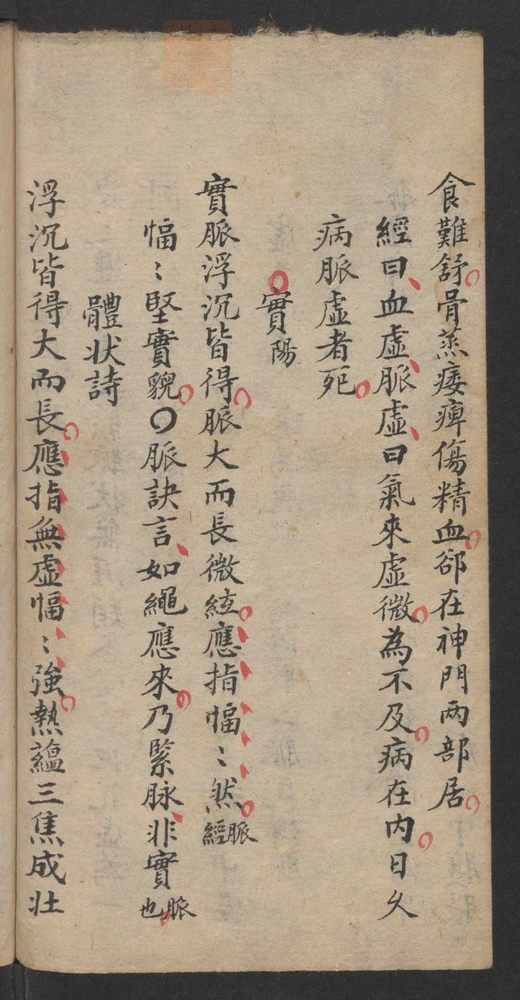 食難舒骨蒸痿痺傷精血郤在神門两部居
經曰血虛脈虛曰氣來虛微為不及病在内日久
病脈虛者死
實陽
實脈浮沉皆得脈大而長微絃應指愊〻然脈經
愊〻堅實貌〇脈訣言如繩應來乃緊脉非實脈也
體状詩
浮沉皆得大而長應指無虛愊〻強熱蘊三焦成壮